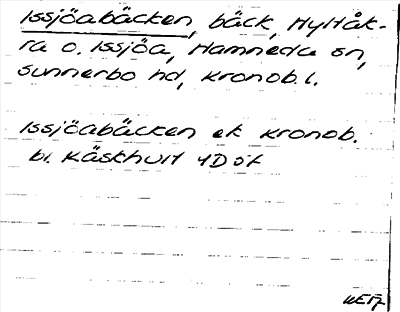 Issjöabäcken, bäck, Hyltåk-
ra o. Issjöa, Hamneda sn,
Sunnerbo hd, Kronob. l.
Issjöabäcken ek Kronob.
bl. Käskhult 4D öf